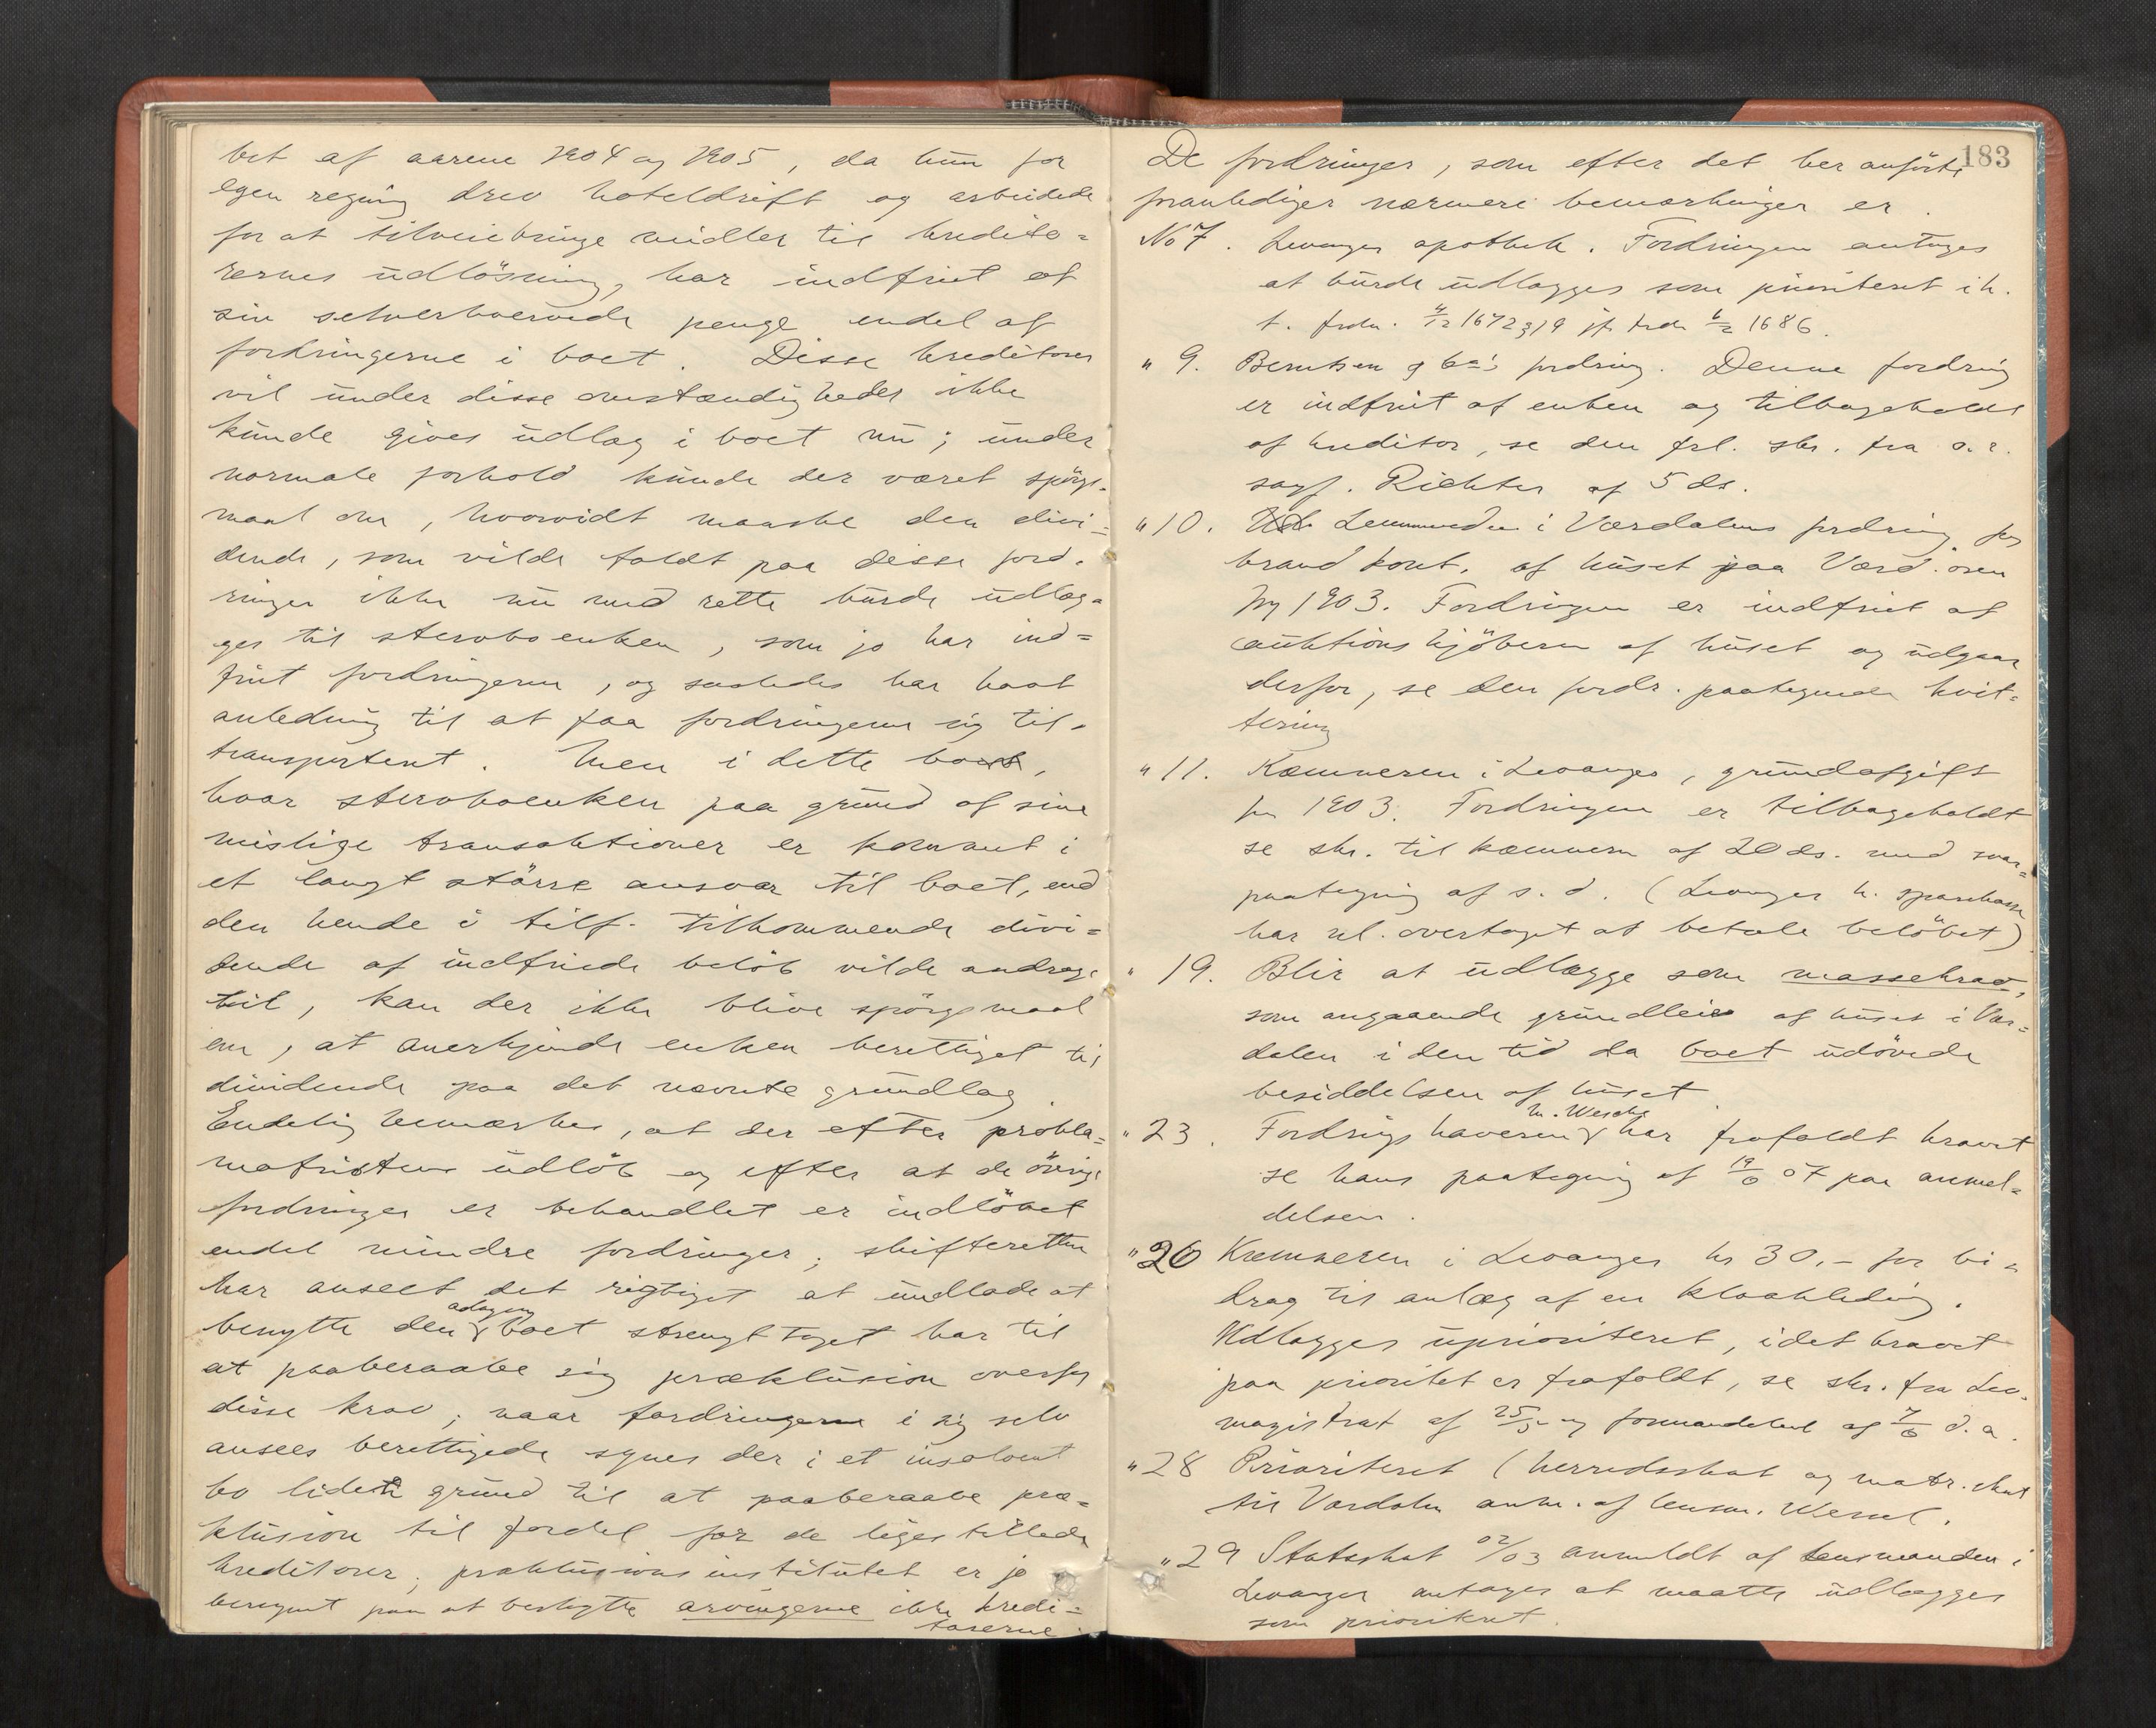 bet af aarene 1904 og 1905, da hun for
egen regning drev hoteldrift og arbeidede
for at tilveiebringe midler til kredito=
rernes udlösning, har indfriet af
sin selverhvervede penge endel af
fordringerne i boet. Disse kreditorer
vil under disse omstændigheder ikke
kunde gives udlæg i boet nu; under
normale forhold kunde der været spörgs-
maal om, hvorvidt maaske den divi=
dende, som vilde faldt paa disse ford-
ringer ikke nu med rette burde udlæg-
ges til stervboenken, som jo har ind=
friet fordringerne, og saaledes har havt
anledning til at faa fordringerne sig til-
transportert. Men i dette bo,
hvor stervboenken paa grund af sine
mislige transaktioner er kommet i
et langt större ansvar til boet, end
den hende i tilf. tilkommende divi=
dende af indfriede beløb vilde andrage
til, kan der ikke blive spörgsmaal
om, at anerkjende enken berettiget til
dividende paa det nævnte grundlag.
Endelig bemærkes, at der efter prokla=
mafristens udlöb og efter at de övrige
fordringer er behandlet er indlöbet
endel mindre fordringer; skifteretten
har anseet det rigtigst at undlade at
benytte den adgang boet strengt taget har til
at paaberaabe sig præklusion overfor
disse krav; naar fordringerne i sig selv
ansees berettigede synes der i et insolvent
bo liden grund til at paaberaabe præ=
klusion til fordel for de ligestillede
kreditorer; præklusionsinstitutet er jo
beregnet paa at beskytte arvingerne ikke kredi=
torerne.
183
De fordringer, som efter det her anförte
foranlediger nærmere bemærkninger er.
No 7. Levanger apothek. Fordringen antages
at burde udlægges som prioriteret i h.
t. frdn. 4/12 1672 3, 19 jf. frdn 6/2 1686.
" 9. Berntsen & Co's fordring. Denne fordring
er indfriet af enken og tilbageholdt
af kreditor, se den frl. skr. fra o.r.
sagf. Richter af 5 ds.
" 10. Lensmanden i Værdalens fordring for
brand kont. af huset paa Værd.ören
for 1903. Fordringen er indfriet af
auktionskjöberen af huset og udgaar
derfor, se den fordr. paategnede kvit=
tering
" 11. Kæmneren i Levanger, grundafgift
for 1903. Fordringen er tilbageholdt
se skr. til kæmneren af 20 ds. med svar=
paategning af s. d. (Levanger h. sparekasse
har nl. overtaget at betale belöbet)
" 19. Blir at udlægge som massekrav,
som angaaende grundleie af huset i Vær=
dalen i den tid da boet udövede
besiddelsen af huset.
" 23. Fordringshaveren h. Wesche har frafaldt kravet
se hans paategning af 19/6 07 paa anmel=
delsen.
" 26 Kæmneren i Levanger kr 30,- for bi=
drag til anlæg af en kloakledning.
Udlægges uprioriteret, idet kravet
paa prioritet er frafaldt, se skr. fra Lev.
magistrat af 25/5 og formandskab af 7/6 d.a.
" 28 Prioriteret (herredsskat og matr.skat
til Værdalen anm. af lensm. Wessel.
" 29 Statsskat 02/03 anmeldt af lensmanden i
Levanger antages at maatte udlægges
som prioriteret.